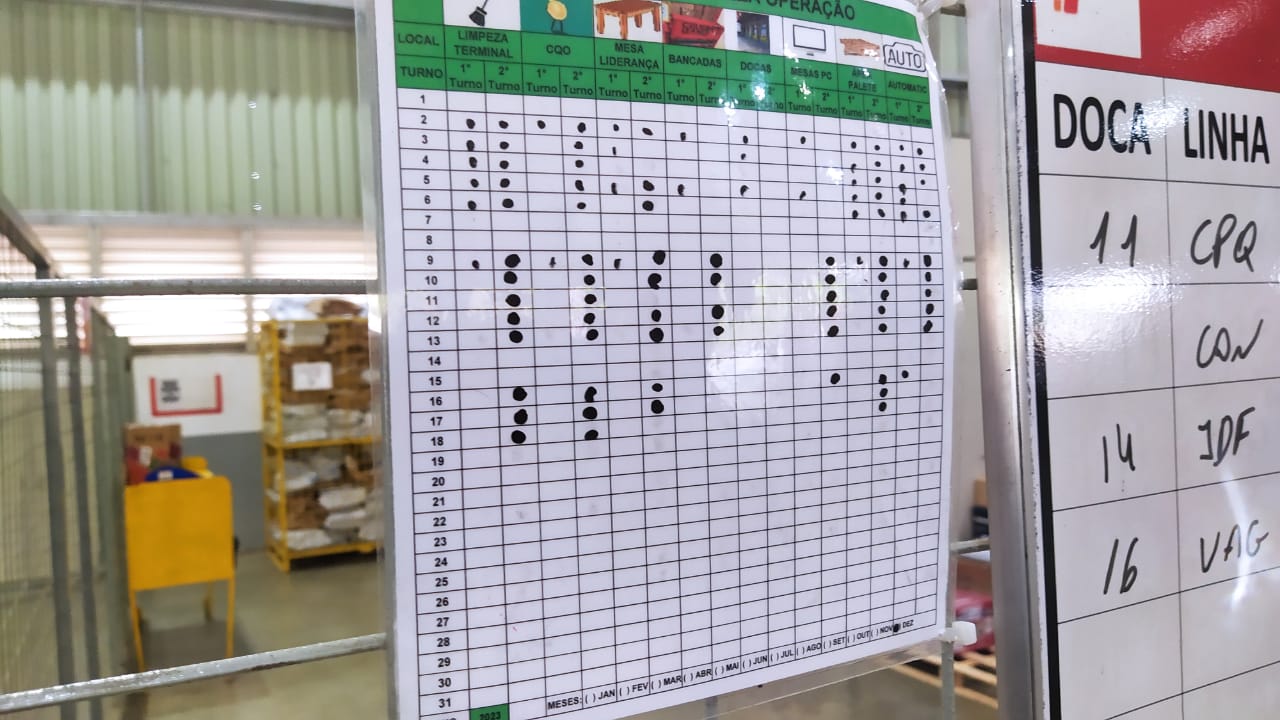 OPERAÇÃO
LOCAL LIMPEZA TERMINAL CQO MESA LIDERANÇA BANCADAS DOCAS MESAS PC PALETE AUTO AUTOMATIC
TURNO 1° Turno 2° Turno 1° Turno 2° Turno 1° Turno 2° Turno 1° Turno 2° Turno 1° Turno 2° Turno 1° Turno 2° Turno 1° Turno 2° Turno 1° Turno 2° Turno
1
2
3
4
5
6
7
8
9
10
11
12
13
14
15
16
17
18
19
20
21
22
23
24
25
26
27
28
29
30
31
2023 MESES: ( ) JAN ( ) FEV ( ) MAR ( ) ABR ( ) MAI ( ) JUN ( ) JUL ( ) AGO ( ) SET ( ) OUT ( ) NOV DEZ
DOCA LINHA
11 CPQ
CAN
14 JDF
16 VAG